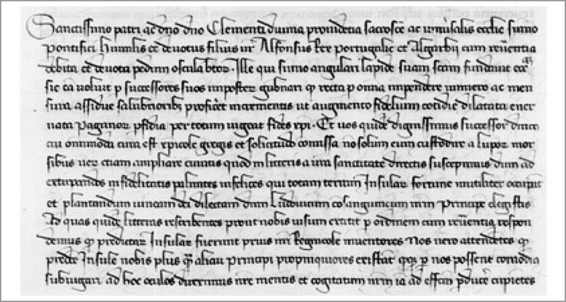 Sanctissimo patri ac dno dno Clementi divina providentia sacrosce ac universalis ecclie sumo
pontifici humilis et devotus filius vr Alfonsus Rex portugalie et Algarbii cum reverentia
debita et devota pedum oscula btor. Ille qui sumo angulari lapide suam scam fundavit eccliam
sic voluit p successores suos imposterum gubnari qp recta p omnia impendere ac men
sura assidue salubrioribus proficeret incrementis ut augmento fidelium cotidie dilatata ener
vata paganor pfidia per totum vigeat fides xpi. Et vos quidem dignissimus successor
cui omnimoda cura est xpicole gregis et solicitudo comissa no solum eum custodire a lupor mor
sibus vero etiam ampliare cupitis quod in litteris a vra sanctitate directis suscepimus dum ad
extirpandos infidelitatis palmites infelices qui totam terram Insular fortune inutiliter occupant
et plantandum vineam dei dilectam dnm Ludovicum consanguineum nrm Principe elegistis
Ad quas quidem litteras rescribentes prout nobis visum extitit p ordinem cum reverentia respon
demus qp predictar Insular fuerunt prius nri Regnicole inventores Nos vero attendentes qp
predte Insule nobis plus qm alicui Principi propinquiores existat qp p nos possent comodius
subiugari ad hoc oculos direximus nre mentis et cogitatum nrm ia ad effem pducere cupietes